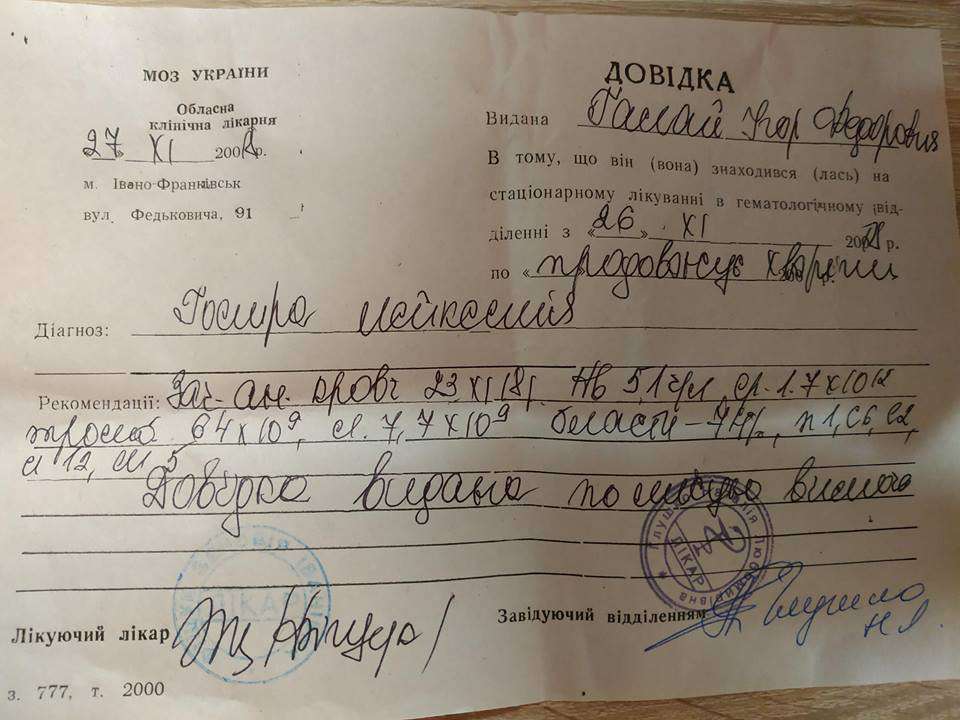 МОЗ УКРАЇНИ
Обласна
клінічна лікарня
27 XI 200 р.
м. Івано-Франківськ
вул. Федьковича, 91
ДОВІДКА
Видана Ігор Федорович
В тому, що він (вона) знаходився (лась) на
стаціонарному лікуванні в гематологічному від-
діленні з «26» XI 200 р.
по « продовжує хворіти
Діагноз: Гостра лейкемія
Рекомендації: Заг. ан. крові 23 XI 18р. Нв 51 г/л, ер. 1.7х10¹²
тромб 64х10⁹, л. 7,7х10⁹ бласти - 74%, п1, с6, е2,
л 12, м 5
Довідка видана по місцю вимоги
ЛІКАР
Лікуючий лікар
Завідуючий відділенням
з. 777, т. 2000